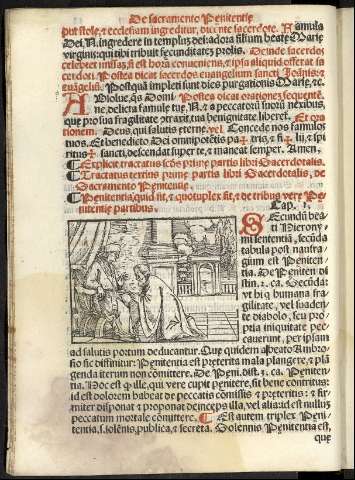 De sacramento Penitentie
put stole, et ecclesiam ingreditur, dicente sacerdote. Famula
Dei. N. ingredere in templum dei: adora filium beate Marie
virginis: qui tibi tribuit fecunditatem prolis. Deinde sacerdos
celebret missam, si est hora conveniens, et ipsa aliquid offerat sa
cerdoti. Postea dicat sacerdos evangelium sancti Joannis: et
evangelium. Postquam impleti sunt dies purgationis Marie, etc.
Absolve, quesumus Domine. Postea dicat orationem sequentem.
ne, delicta famule tue, N. et a peccatorum suorum nexibus,
que pro sua fragilitate contraxit, tua benignitate liberet. Et ora
tionem. Deus, qui salutis eterne. vel Concede nos famulos
tuos. Et benedictio Dei omnipotentis pa✠tris, et fi✠lii, et spi
ritus✠sancti, descendat super te, et maneat semper. Amen.
Explicit tractatus secundus prime partis libri Sacerdotalis.
Tractatus tertius prime partis libri Sacerdotalis, de
Sacramento Penitentie.
Penitentia, quid sit, et quotuplex sit, et de tribus vere Pe
nitentie partibus. Cap. 1.
SEcundum bea
ti Hierony
mi sententiam, secunda
tabula post naufra
gium est Peniten
tia. De Peniten. di
stin. 1. ca. Secunda:
ut biqz humana fra
gilitate, vel suaden
te diabolo, seu pro
pria iniquitate pec
caverunt, per ipsam
ad salutis portum deducantur. Que quidem a beato Ambro
sio sic diffinitur: Penitentia est preterita mala plangere, et plan
genda iterum non committere. De Peni. dist. 3. ca. Peniten
tia. Hoc est quod ille, qui vere cupit penitere, sit bene contritus:
id est dolorem habeat de peccatis comissis et preteritis: et fir
miter disponat et proponat deinceps illa, vel alia: id est nullum
peccatum mortale committere. Est autem triplex Peni
tentia, s. solennis, publica, et secreta. Solennis Penitentia est,
que